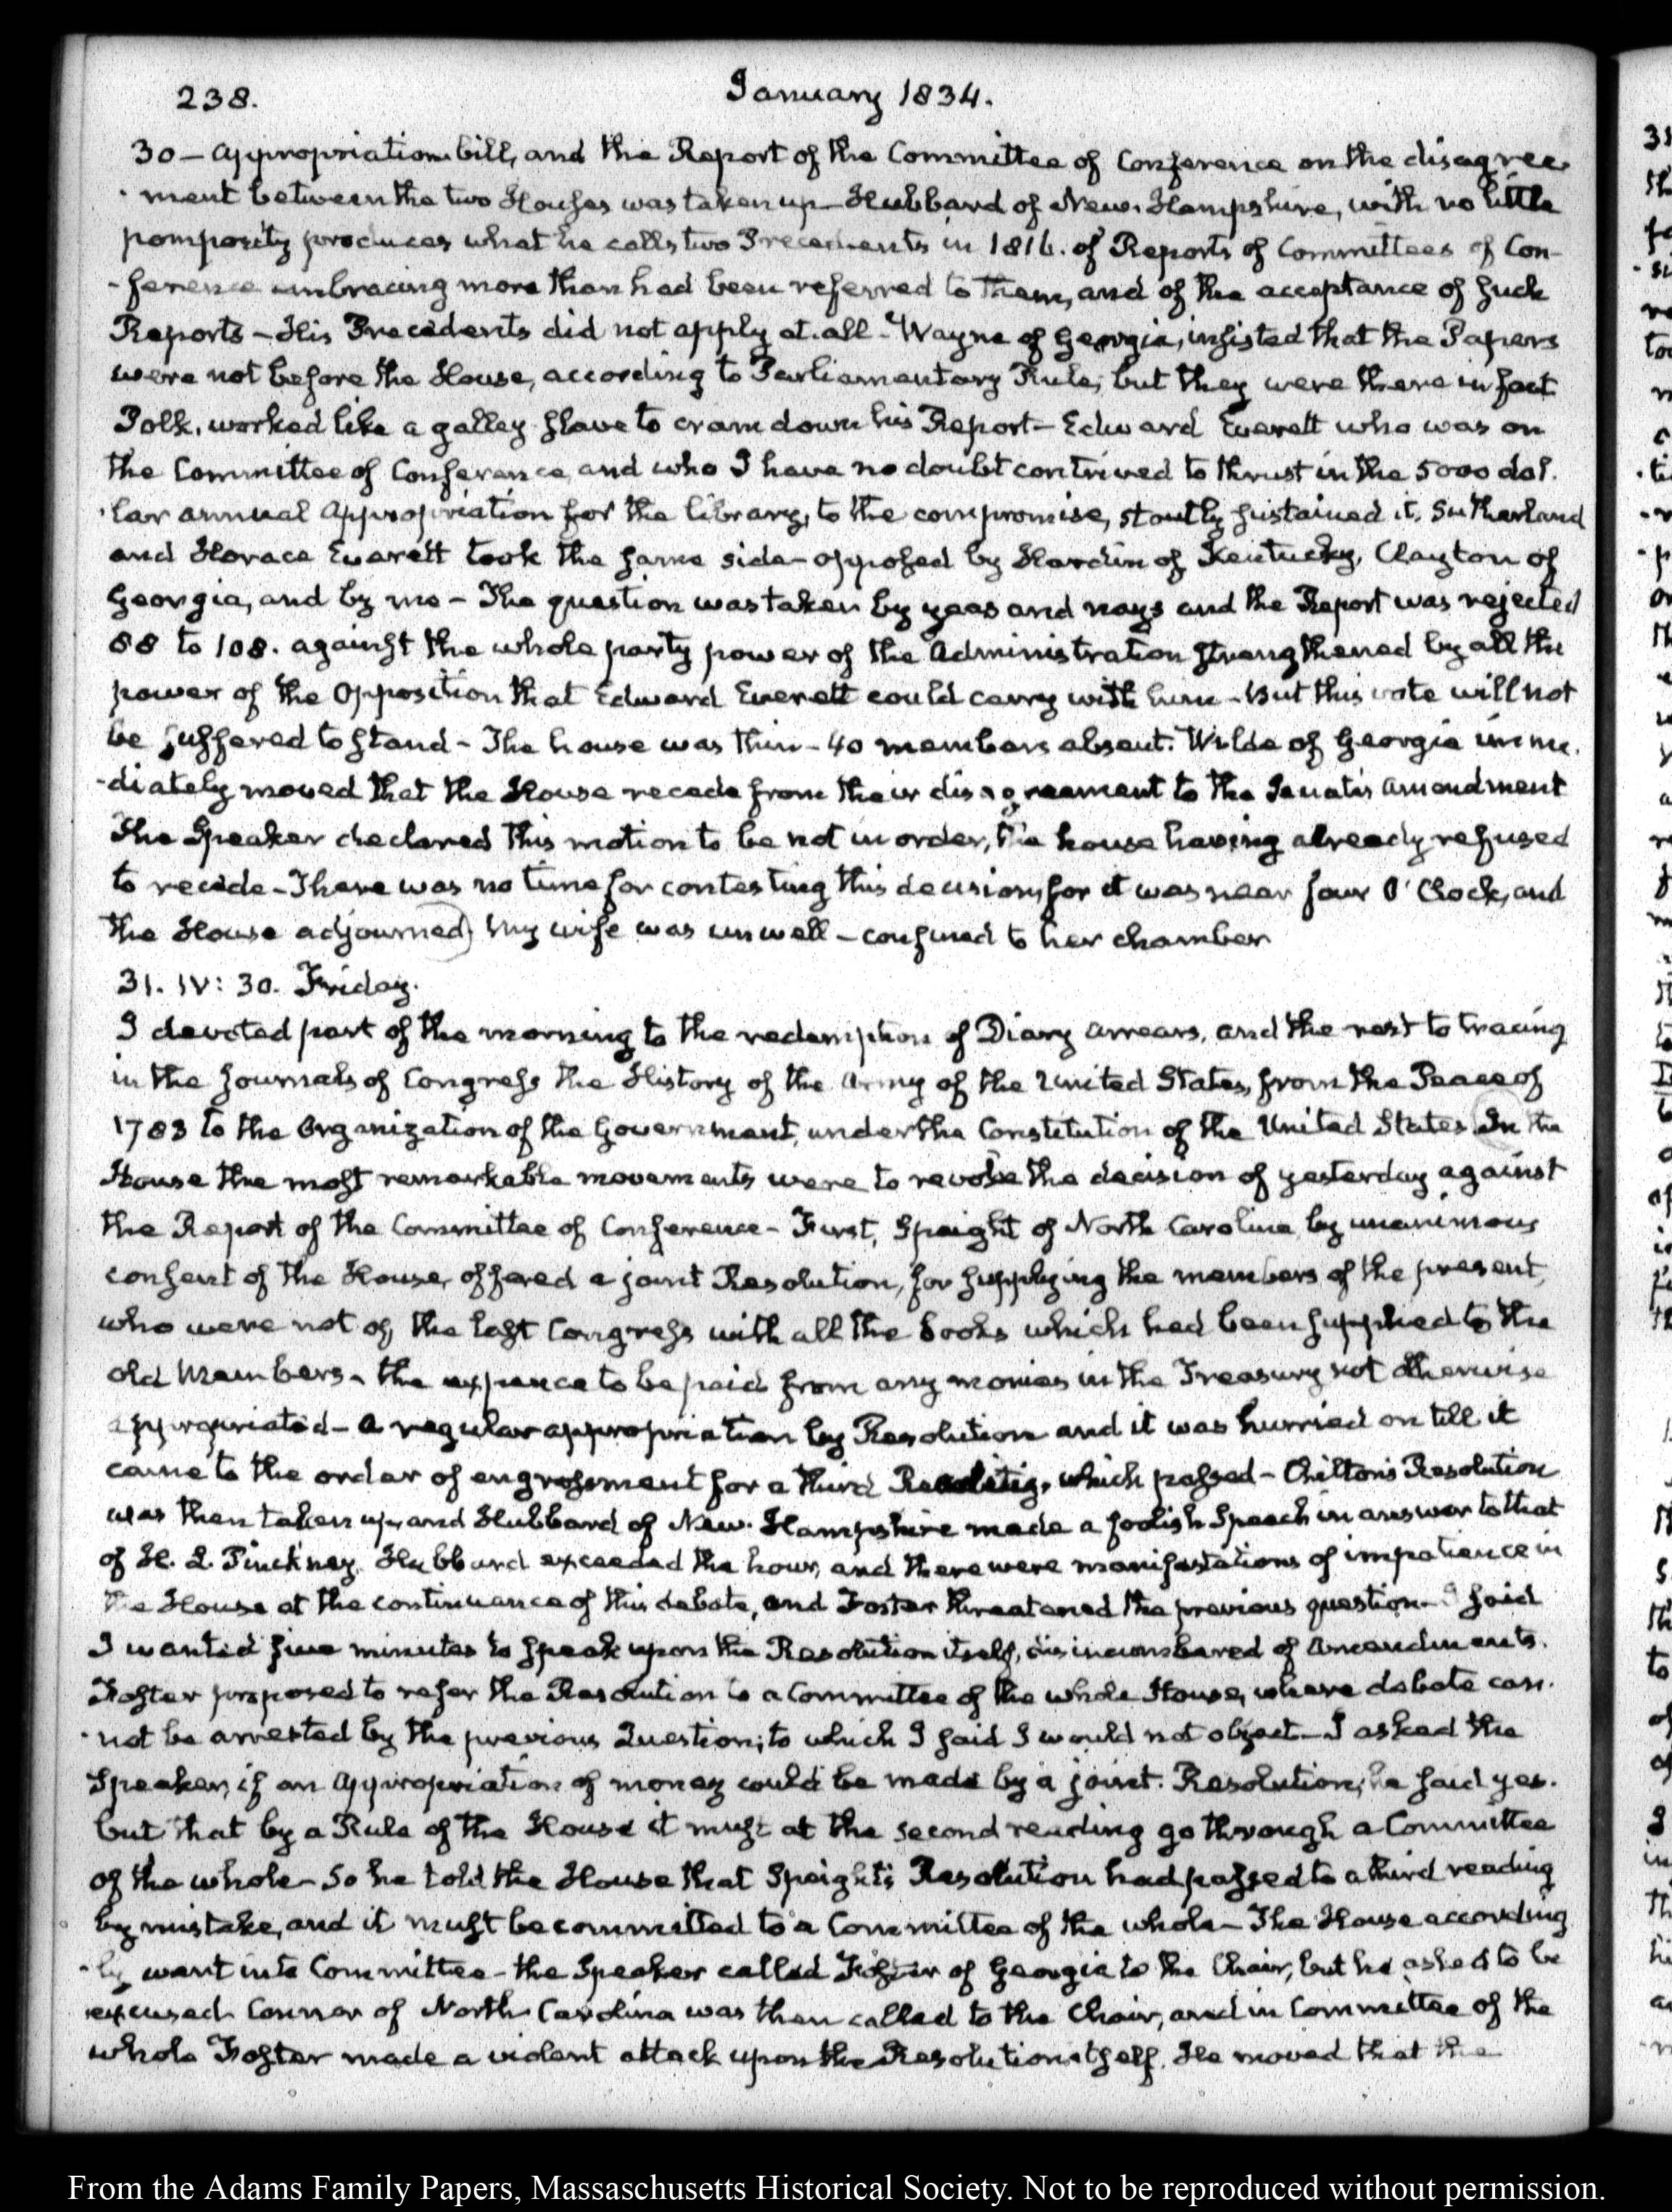 238.
January 1834.
30 — Appropriation bill, and the Report of the Committee of Conference on the disagree-
-ment between the two Houses was taken up — Hubbard of New-Hampshire, with no little
pomposity produces what he calls two Precedents in 1816. of Reports of Committees of Con-
-ference embracing more than had been referred to them, and of the acceptance of such
Reports — His Precedents did not apply at all — Wayne of Georgia, insisted that the Papers
were not before the House, according to Parliamentary Rule, but they were there in fact
Polk, worked like a galley slave to cram down his Report — Edward Everett who was on
the Committee of Conference, and who I have no doubt contrived to thrust in the 5000 dol-
-lar annual appropriation for the library, to the compromise, stoutly sustained it. Sutherland
and Horace Everett took the same side — opposed by Hardin of Kentucky, Clayton of
Georgia, and by me — The question was taken by yeas and nays and the Report was rejected
88 to 108. against the whole party power of the Administration strengthened by all the
power of the Opposition that Edward Everett could carry with him — But this vote will not
be suffered to stand — The house was thin — 40 members absent. Wilde of Georgia imme-
-diately moved that the House recede from their disagreement to the Senate's amendment
The Speaker declared this motion to be not in order, the house having already refused
to recede — There was no time for contesting this decision, for it was near four O'Clock, and
the House adjourned) My wife was unwell — confined to her chamber
31. IV: 30. Friday.
I devoted part of the morning to the redemption of Diary arrears, and the rest to tracing
in the Journals of Congress the History of the Army of the United States, from the Peace of
1783 to the Organization of the Government, under the Constitution of the United States (In the
House the most remarkable movements were to revoke the decision of yesterday against
the Report of the Committee of Conference — First, Speight of North Carolina by unanimous
consent of the House, offered a joint Resolution, for supplying the members of the present,
who were not of the last Congress with all the books which had been supplied to the
old Members — the expence to be paid from any monies in the Treasury not otherwise
appropriated — A regular appropriation by Resolution and it was hurried on till it
came to the order of engrossment for a third Reading, which passed — Chilton's Resolution
was then taken up, and Hubbard of New-Hampshire made a foolish Speech in answer to that
of H. L. Pinckney. Hubbard exceeded the hour, and there were manifestations of impatience in
the House at the continuance of this debate, and Foster threatened the previous question — I said
I wanted five minutes to speak upon the Resolution itself, disincumbered of amendments.
Foster proposed to refer the Resolution to a Committee of the whole House, where debate can-
-not be arrested by the previous Question; to which I said I would not object — I asked the
Speaker, if an appropriation of money could be made by a joint Resolution; he said yes.
but that by a Rule of the House it must at the second reading go through a Committee
of the whole — So he told the House that Speight's Resolution had passed to a third reading
by mistake, and it must be committed to a Committee of the whole — The House according-
-ly went into Committee — the Speaker called Foster of Georgia to the Chair, but he asked to be
excused. Connor of North-Carolina was then called to the Chair, and in Committee of the
whole Foster made a violent attack upon the Resolution itself. He moved that the
From the Adams Family Papers, Massachusetts Historical Society. Not to be reproduced without permission.